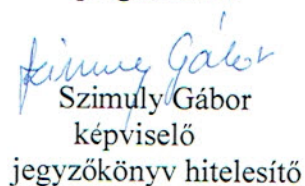 Szimuly Gábor
Szimuly Gábor
képviselő
jegyzőkönyv hitelesítő